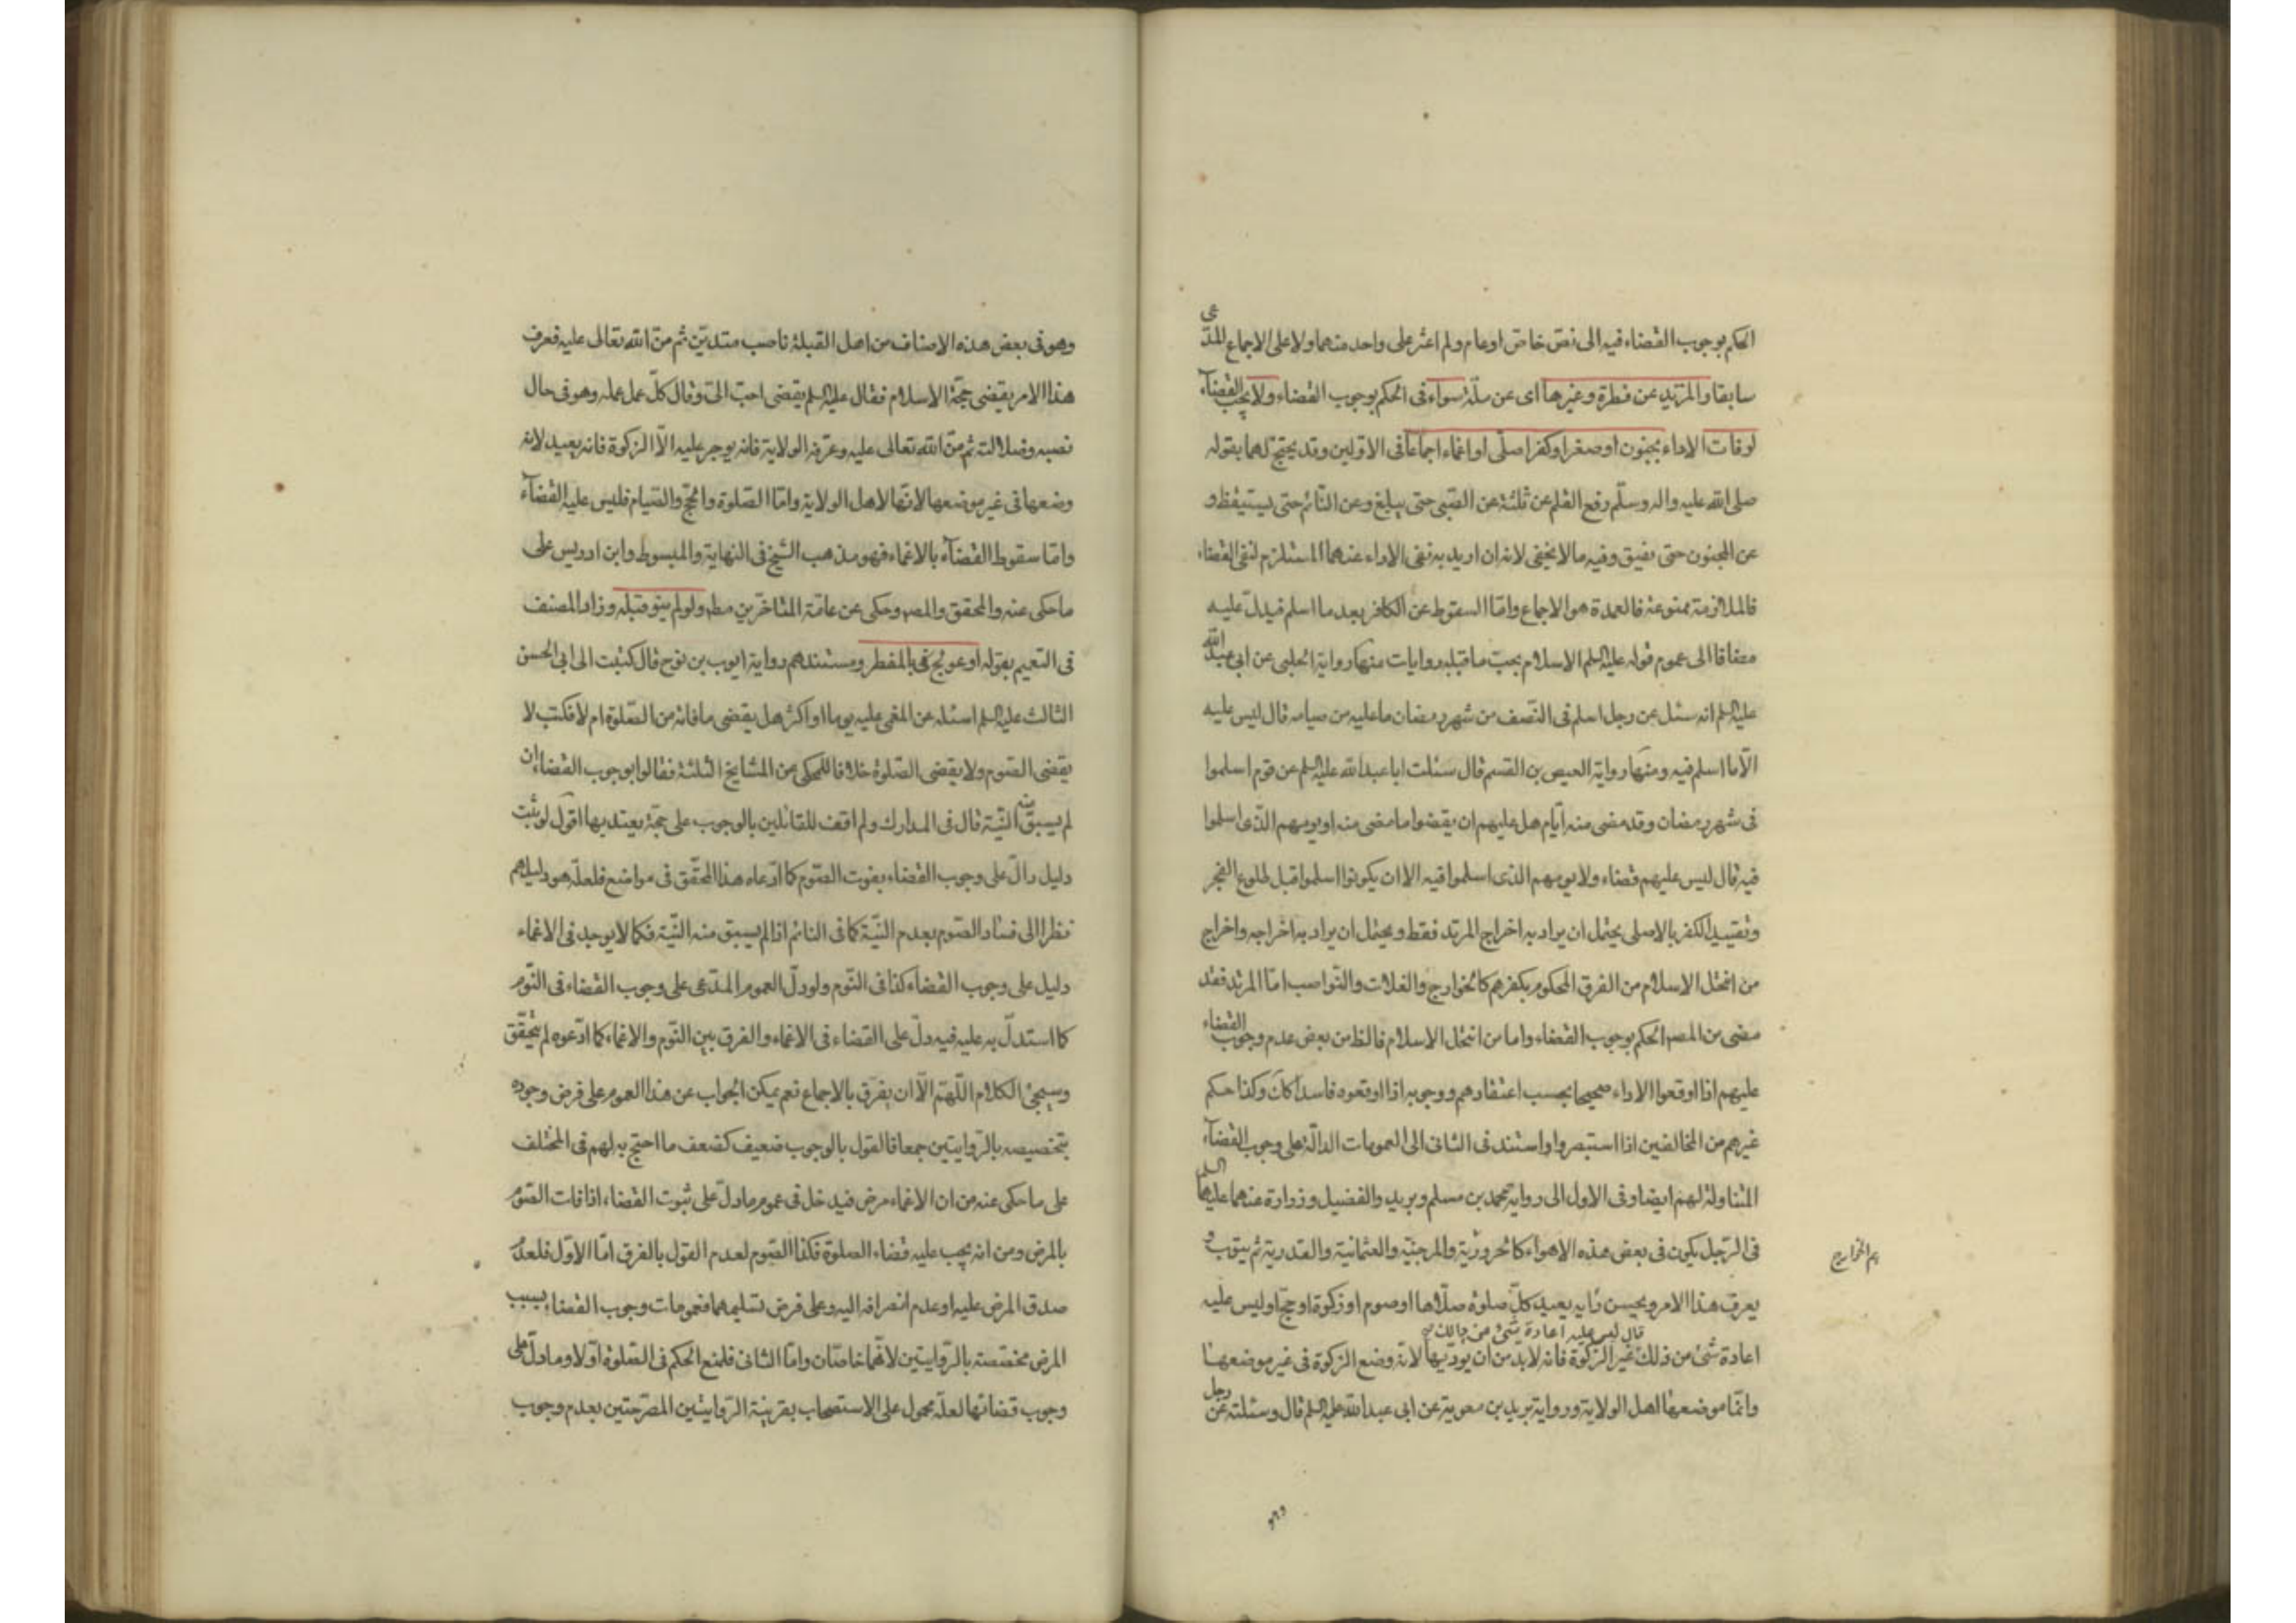 الحكم بوجوب القضاء فيه الى نص خاص او عام ولم اعثر على واحد منهما ولا على الاجماع المدعى
سابقا والمرتد عن فطرة وغيرها اى عن ملّة سواء فى الحكم بوجوب القضاء ولا يجب القضآء
لوفات الاداء بجنون او صغر او كفر اصلى او اغماء اجماعا فى الاولين وقد يحتج لهما بقوله
صلى الله عليه واله وسلّم رفع القلم عن ثلثة عن الصّبى حتى يبلغ وعن النّائم حتى يستيقظ و
عن المجنون حتى يفيق وفيه ما لا يخفى لانه ان اريد به نفى الاداء عنهما المستلزم لنفى القضاء
فالملازمة ممنوعة فالعمدة هو الاجماع وامّا السقوط عن الكافر بعد ما اسلم فيدلّ عليه
مضافا الى عموم قوله عليه السلم الاسلام يجبّ ما قبله روايات منها رواية الحلبى عن ابى عبد الله
عليه السلم انه سئل عن رجل اسلم فى النّصف من شهر رمضان ما عليه من صيامه قال ليس عليه
الّا ما اسلم فيه ومنها رواية العيص بن القسم قال سئلت ابا عبد الله عليه السلم عن قوم اسلموا
فى شهر رمضان وقد مضى منه ايّام هل عليهم ان يقضوا ما مضى منه او يومهم الذى اسلموا
فيه قال ليس عليهم قضاء ولا يومهم الذى اسلموا فيه الا ان يكونوا اسلموا قبل طلوع الفجر
وتقييد الكفر بالاصلى يحتمل ان يراد به اخراج المرتد فقط ويحتمل ان يراد به اخراجه واخراج
من انتحل الاسلام من الفرق المحكوم بكفرهم كالخوارج والغلات والنّواصب امّا المرتد فقد
مضى من المصم الحكم بوجوب القضاء واما من انتحل الاسلام فالظ من بعض عدم وجوب القضاء
عليهم اذا اوقعوا الاداء صحيحا بحسب اعتقادهم ووجوبه اذا اوقعوه فاسدا كان وكذا حكم
غيرهم من المخالفين اذا استبصروا واستند فى الثانى الى العمومات الدالّة على وجوب القضآء
المتناولة لهم ايضا وفى الاول الى رواية محمد بن مسلم وبريد والفضيل وزرارة عنهما عليهما السلم
فى الرّجل يكون فى بعض هذه الاهواء كالحروريّة والمرجئة والعثمانية والقدرية ثم يتوب و
هم الخوارج
يعرف هذا الامر ويحسن رايه يعيد كلّ صلوة صلّاها او صوم او زكوة او حجّ او ليس عليه
قال ليس عليه اعادة شئ من ذلك
اعادة شئ من ذلك غير الزكوة فانه لابدّ من ان يودّيها لانه وضع الزكوة فى غير موضعها
وانّما موضعها اهل الولاية ورواية بريد بن معوية عن ابى عبد الله عليه السلم قال وسئلته عن رجل
وهو فى بعض هذه الاصناف من اهل القبلة ناصب متديّن ثم منّ الله تعالى عليه فعرف
هذا الامر يقضى حجّة الاسلام فقال عليه السلم يقضى احبّ الىّ وقال كلّ عمل عمله وهو فى حال
نصبه وضلالته ثم منّ الله تعالى عليه وعرّفه الولاية فانه يوجر عليه الّا الزكوة فانه يعيد لانه
وضعها فى غير موضعها لانّها لاهل الولاية وامّا الصّلوة والحجّ والصّيام فليس عليه القضآء
وامّا سقوط القضآء بالاغماء فهو مذهب الشيخ فى النهاية والمبسوط وابن ادريس على
ما حكى عنه والمحقق والمصم وحكى عن عامّة المتاخّرين مطم ولو لم ينو قبله وزاد المصنف
فى التعميم بقوله او عولج فى بالمفطر ومستندهم رواية ايوب بن نوح قال كتبت الى ابى الحسن
الثالث عليه السلم اسئله عن المغمى عليه يوما او اكثر هل يقضى ما فاته من الصّلوة ام لا فكتب لا
يقضى الصّوم ولا يقضى الصّلوة خلافا للمحكى عن المشايخ الثلثة فقالوا بوجوب القضاء ان
لم يسبق منه النيّة قال فى المدارك ولم اقف للقائلين بالوجوب على حجّة يعتد بها اقول لو ثبت
دليل دالّ على وجوب القضاء بفوت الصّوم كما ادّعاه هذا المحقّق فى مواضع فلعلّه هو دليلهم
نظرا الى فساد الصّوم بعدم النيّة كما فى النائم اذا لم يسبق منه النيّة فكما لا يوجد فى الاغماء
دليل على وجوب القضاء كذا فى النّوم ولو دلّ العموم المدّعى على وجوب القضاء فى النّوم
كما استدلّ به عليه فيه دلّ على القضاء فى الاغماء والفرق بين النّوم والاغماء كما ادّعوه لم يتحقّق
وسيجئ الكلام اللّهم الّا ان يفرق بالاجماع نعم يمكن الجواب عن هذا العموم على فرض وجوده
بتخصيصه بالرّوايتين جمعا فالقول بالوجوب ضعيف كضعف ما احتج به لهم فى المختلف
على ما حكى عنه من ان الاغماء مرض فيدخل فى عموم ما دلّ على ثبوت القضاء اذا فات الصّوم
بالمرض ومن انه يجب عليه قضاء الصلوة فكذا الصّوم لعدم القول بالفرق امّا الاوّل فلعدم
صدق المرض عليه او عدم انصرافه اليه وعلى فرض تسليمهما فعمومات وجوب القضاء بسبب
المرض مخصّصة بالرّوايتين لانّهما خاصّتان وامّا الثانى فلمنع الحكم فى الصّلوة اوّلا وما دلّ على
وجوب قضائها لعلّه محمول على الاستصحاب بقرينة الرّوايتين المصرّحتين بعدم وجوب